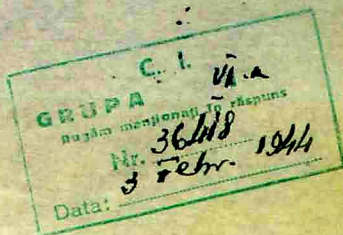 C. I.
GRUPA VI-a
Rugăm menționați în răspuns
Nr. 36448
Data: 3 Febr. 1944